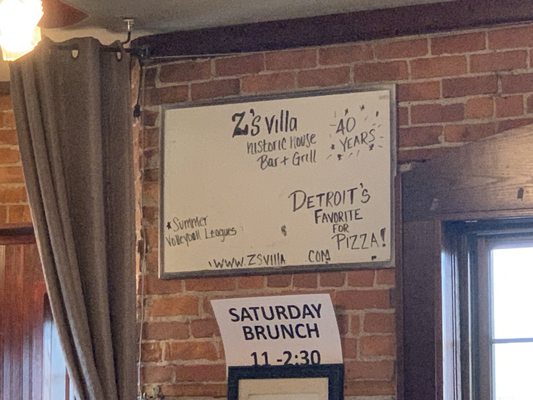 Z's Villa
Historic House
Bar + Grill
40
YEARS
DETROIT'S
FAVORITE
FOR
PIZZA!
*Summer
Volleyball Leagues
WWW.ZSVILLA.COM
SATURDAY
BRUNCH
11-2:30